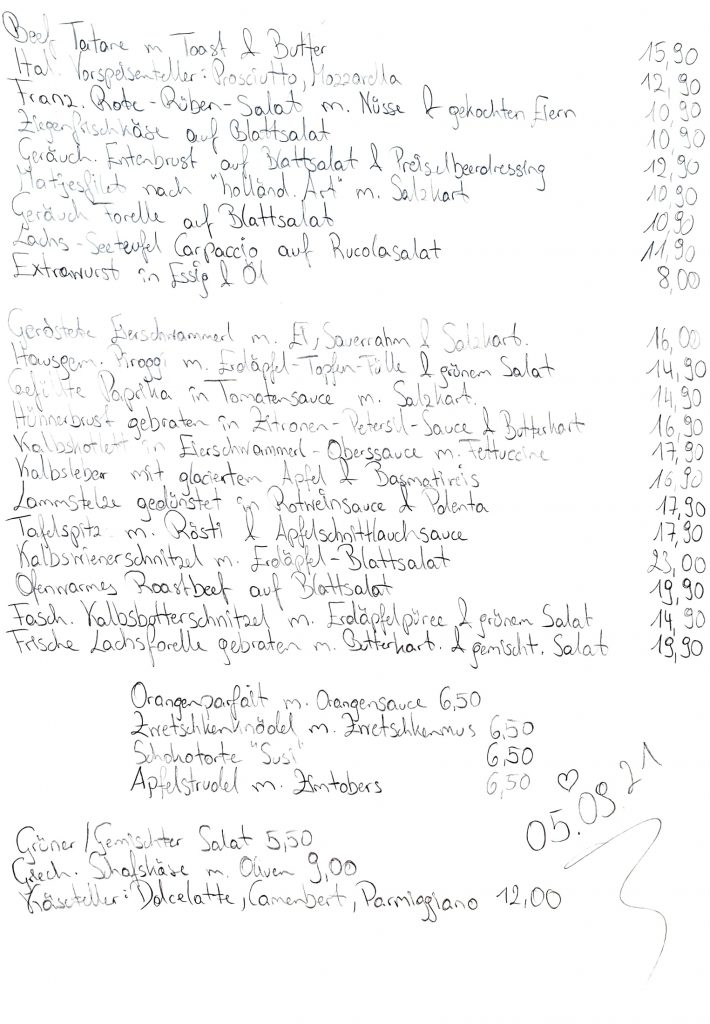 Beef Tatare m. Toast & Butter 15,90
Ital. Vorspeisenteller: Prosciutto, Mozzarella 12,90
Franz. Rote-Rüben-Salat m. Nüsse & gekochten Eiern 10,90
Ziegenfrischkäse auf Blattsalat 10,90
Geräuch. Entenbrust auf Blattsalat & Preiselbeerdressing 12,90
Matjesfilet nach "holländ. Art" m. Salzkart 10,90
Geräuch Forelle auf Blattsalat 10,90
Lachs-Seeteufel Carpaccio auf Rucolasalat 11,90
Extrawurst in Essig & Öl 8,00
Geröstete Eierschwammerl m. Ei, Sauerrahm & Salzkart. 16,00
Hausgem. Piroggi m. Erdäpfel-Topfen-Fülle & grünem Salat 14,90
Gefüllte Paprika in Tomatensauce m. Salzkart. 14,90
Hühnerbrust gebraten in Zitronen-Petersil-Sauce & Butterkart 16,90
Kalbskotlett in Eierschwammerl-Oberssauce m. Fettuccine 17,90
Kalbsleber mit glaciertem Apfel & Basmatireis 16,90
Lammstelze gedünstet in Rotweinsauce & Polenta 17,90
Tafelspitz m. Rösti & Apfelschnittlauchsauce 17,90
Kalbswienerschnitzel m. Erdäpfel-Blattsalat 23,00
Ofenwarmes Roastbeef auf Blattsalat 19,90
Fasch. Kalbsbutterschnitzel m. Erdäpfelpüree & grünem Salat 14,90
Frische Lachsforelle gebraten m. Butterkart. & gemischt. Salat 19,90
Orangenparfait m. Orangensauce 6,50
Zwetschkenknödel m. Zwetschkenmus 6,50
Schokotorte "Susi" 6,50
Apfelstrudel m. Zimtobers 6,50
05.09.21
Grüner/Gemischter Salat 5,50
Griech. Schafskäse m. Oliven 9,00
Käseteller: Dolcelatte, Camenbert, Parmiggiano 12,00